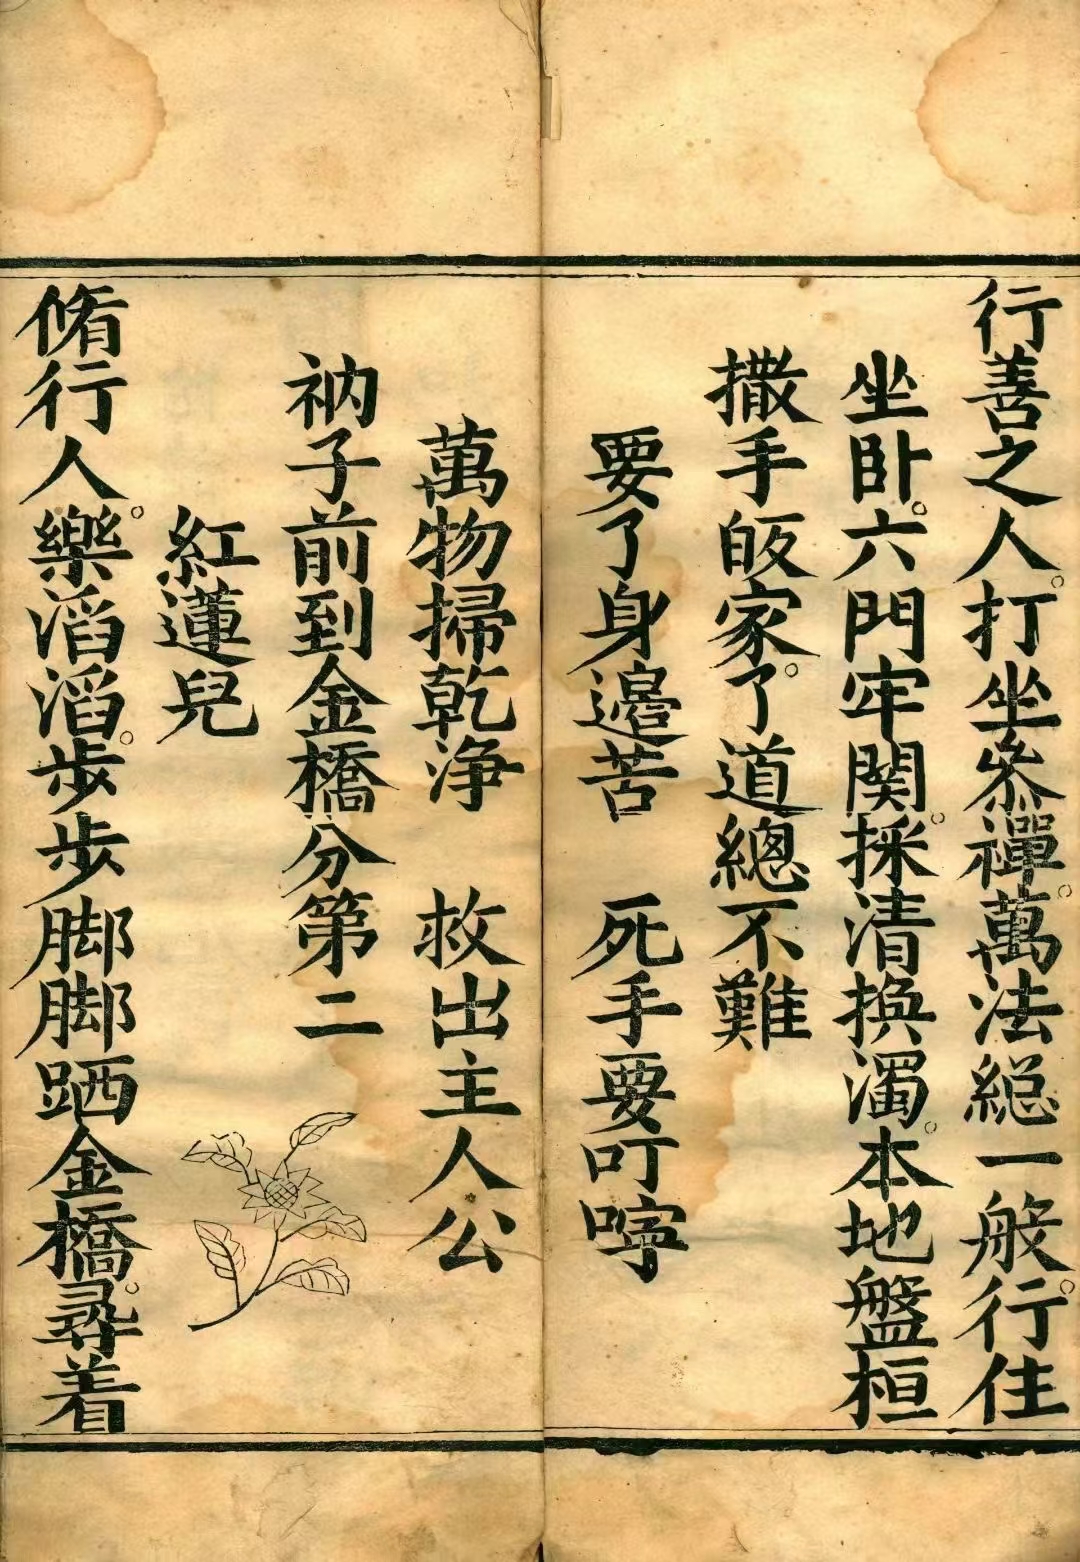 行善之人。打坐叅禪。萬法緫一般。行住
坐卧。六門牢関。採清換濁。本地盤桓
撒手皈家。了道總不難
要了身邉苦　死手要叮嚀
萬物掃乾净　救出主人公
衲子前到金橋分第二
紅蓮兒
脩行人。樂滔滔。步步脚脚跴金橋。尋着